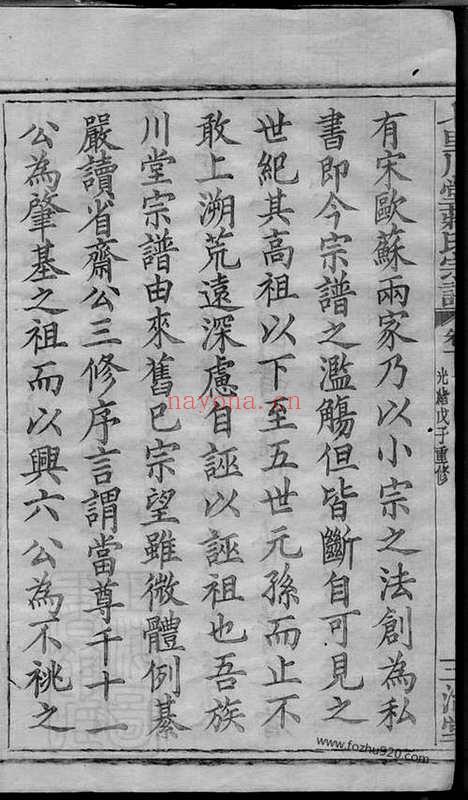 有宋歐蘇兩家乃以小宗之法創為私
書即今宗譜之濫觴但皆斷自可見之
世紀其高祖以下至五世元孫而止不
敢上溯荒遠深慮自誣以誣祖也吾族
川堂宗譜由來舊已宗望雖微體例綦
嚴讀省齋公三修序言謂當尊千十一
公為肇基之祖而以興六公為不祧之
光緒戊子重修
nayona.cn
www.fozhu920.com